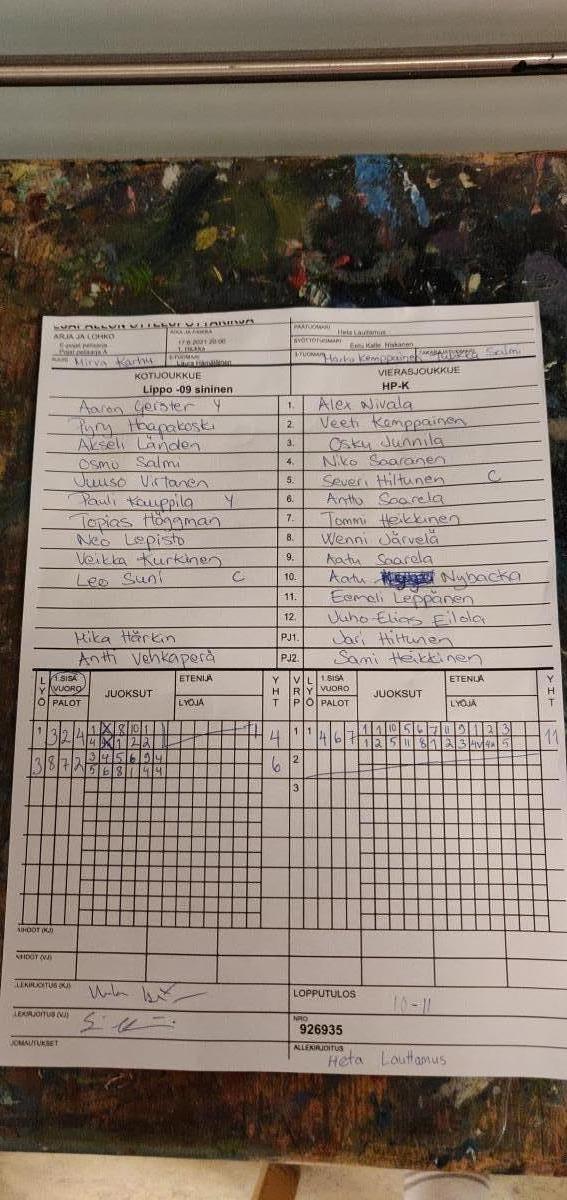 PESÄPALLON OTTELUPÖYTÄKIRJA
ARJA JA LOHKO
AIKA JA PAIKKA
17.6.2021 20:00
PÄÄTUOMARI
Heta Lauttamus
SYÖTTÖTUOMARI
Eetu Kalle Niskanen
Mirva Karhu
2-TUOMARI
3-TUOMARI
Kemppainen
Salmi
KOTIJOUKKUE
VIERASJOUKKUE
Lippo -09 sininen
HP-K
Aaron Geister Y 1. Alex Nivala
Pyry Haapakoski 2. Veeti Kemppainen
Akseli Länden 3. Osku Junnila
Osmo Salmi 4. Niko Saaranen
Juuso Virtanen 5. Severi Hiltunen C
Pauli Kauppila Y 6. Anttu Saarela
Topias Höggman 7. Tommi Heikkinen
Neo Lepistö 8. Wenni Järvelä
Veikka Kurkinen 9. Aatu Saarela
Leo Suni C 10. Aatu Nybacka
11. Eemeli Leppänen
12. Juho-Elias Eilola
Mika Härkin PJ1. Jari Hiltunen
Antti Vehkaperä PJ2. Sami Heikkinen
LYÖ 1.SISÄ VUORO PALOT JUOKSUT ETENIJÄ LYÖJÄ YHT VRP LYÖ 1.SISÄ VUORO PALOT JUOKSUT ETENIJÄ LYÖJÄ YHT
1 3 2 4 1 X 8 10 1 4 1 1 4 6 7 1 1 10 5 6 7 11 9 1 2 3 11
4 X 1 2 2 1 2 5 11 8 1 2 3 4V 4V 5
3 8 7 2 3 4 5 6 9 4 6 2
5 6 8 1 4 4
3
LOPPUTULOS 10-11
NRO
926935
ALLEKIRJOITUS
Heta Lauttamus